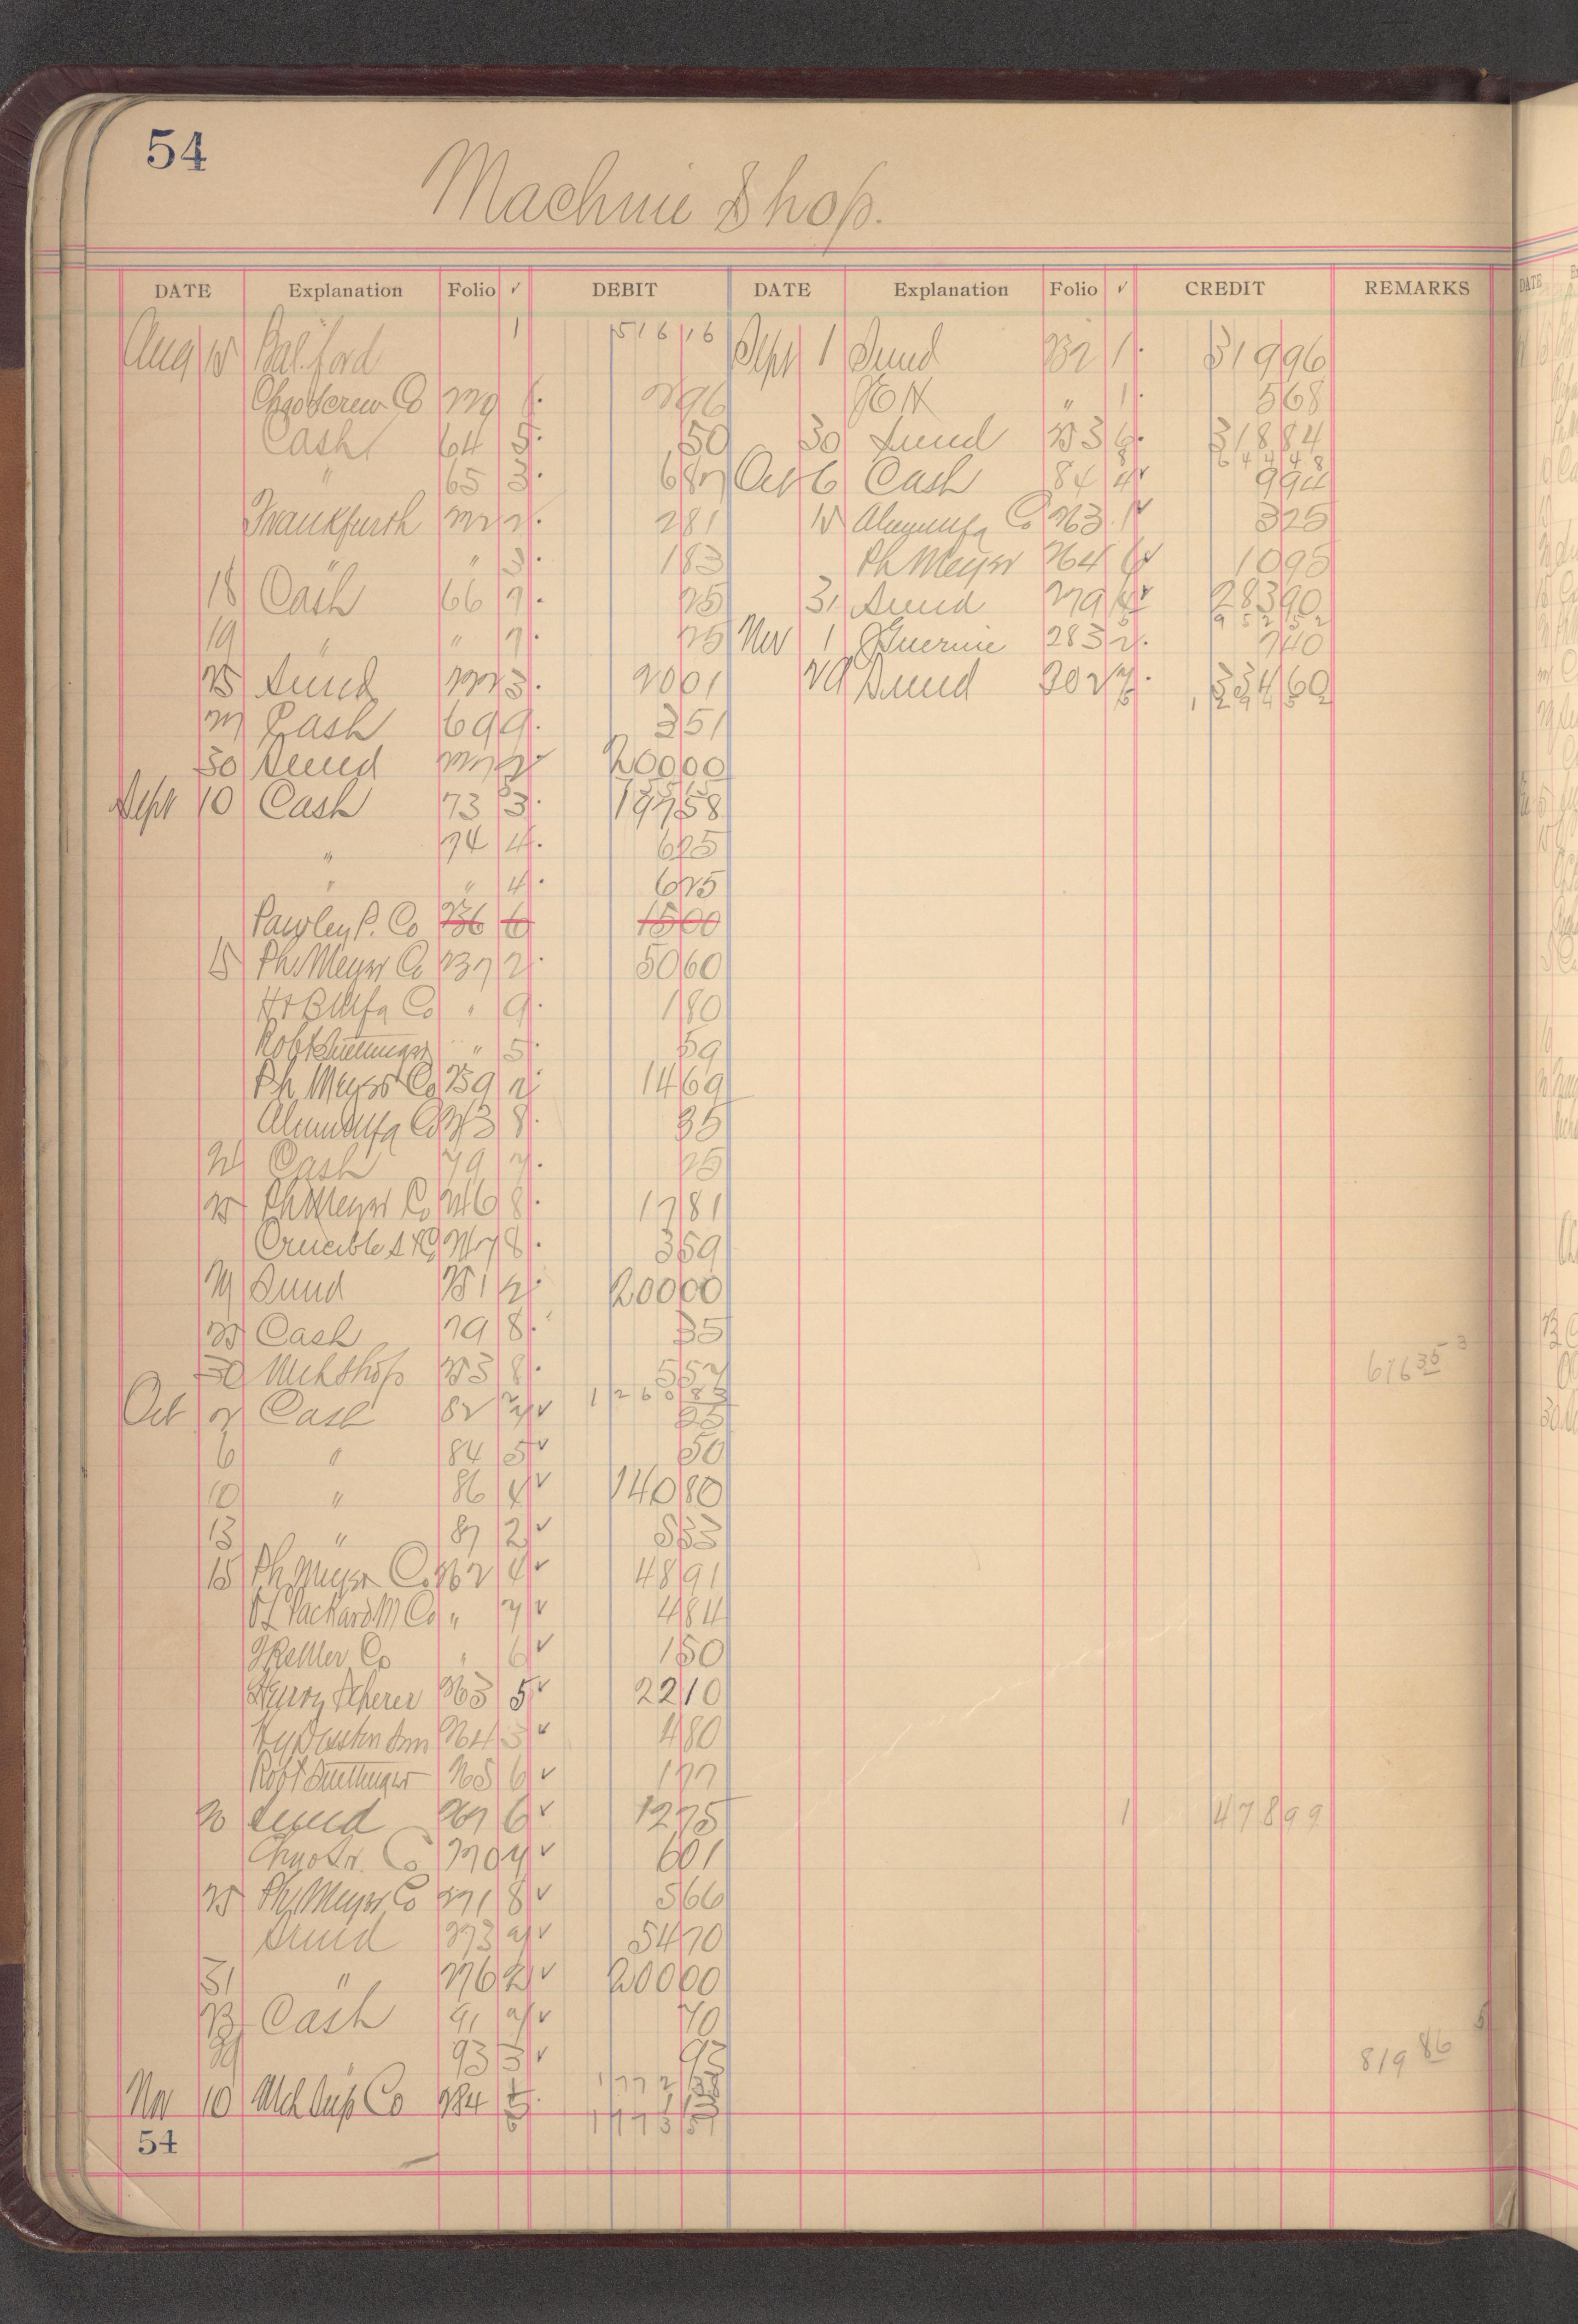 54
Machine Shop.
DATE Explanation Folio ✓ DEBIT DATE Explanation Folio ✓ CREDIT REMARKS
Aug 15 Bal. ford 1 516 16 Sept 1 Sund 232 1 319 96
Chgo Screw Co 219 1 2 96 " 1 5 68
Cash 64 5 50 30 Sund 253 6 318 84
" 65 3 6 87 644 48
Oct 6 Cash 84 4 9 94
Frankfurth 2 2 81 15 Alum Mfg Co 263 1 3 25
" " 3 1 83 Ph Meyer 264 6 10 95
18 Cash 66 7 25 31 Sund 279 4 283 90
19 " " 7 25 952 52
Nov 1 Guernie 283 2 7 40
25 Sund 222 3 20 01 29 Sund 302 7 334 60
27 Cash 69 9 3 51 1294 52
30 Sund 227 2 200 00
Sept 10 Cash 73 3 197 58
" 74 4 6 25
" " 4 6 25
Pawley P. Co 236 6 15 00
15 Ph Meyer Co 237 2 50 60
H & B Mfg Co " 9 1 80
Robt " 5 59
Ph Meyer Co 239 2 14 69
Alum Mfg Co 243 8 35
Cash 79 7 25
25 Ph Meyer Co 246 8 17 81
Crucible S & Co 247 8 3 59
29 Sund 251 2 200 00
25 Cash 79 8 35
30 Mch Shop 253 8 5 57 676 35
1260 83
Oct 2 Cash 82 7 25
6 " 84 5 50
10 " 86 4 140 80
13 " 87 2 5 33
15 Ph Meyer Co 262 4 48 91
O L Packard M Co " 7 4 84
Co " 6 1 50
Henry Scherer 263 5 22 10
Hy Disston Sons 264 3 4 80
Robt 265 6 1 77
20 Sund 267 6 12 75 1 478 99
Chgo Scr. Co 270 7 6 01
25 Ph Meyer Co 271 8 5 66
Sund 273 7 54 70
31 " 276 2 200 00
23 Cash 91 7 70
29 " 93 3 93 819 86
1772
Nov 10 Mch Sup Co 284 5
1773 51
54